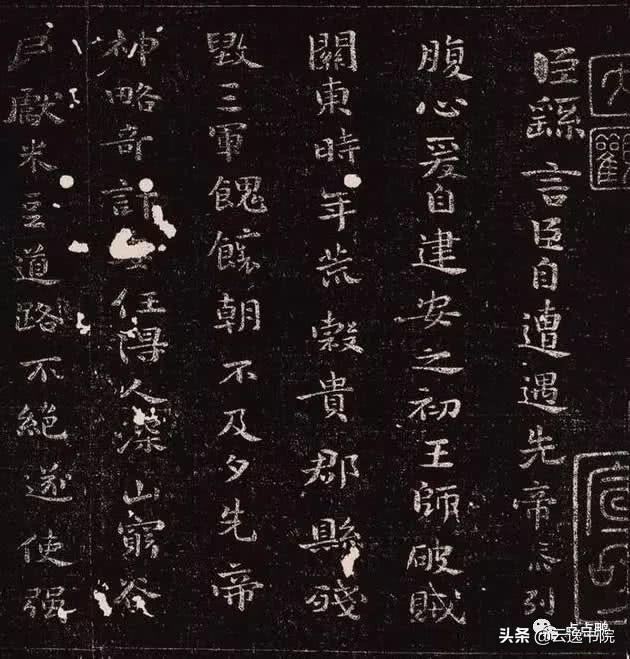 大觀
臣繇言臣自遭遇先帝忝列
腹心爰自建安之初王師破賊
關東時年荒穀貴郡縣殘
毀三軍餽饟朝不及夕先帝
神略奇計委任得人深山窮谷
民獻米豆道路不絕遂使强
点点鹏
头条 @云逸书院